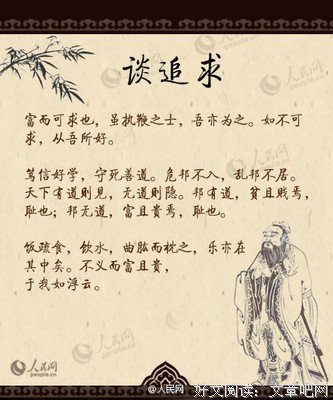 人民网
people.cn
谈追求
富而可求也，虽执鞭之士，吾亦为之。如不可
求，从吾所好。
笃信好学，守死善道。危邦不入，乱邦不居。
天下有道则见，无道则隐。邦有道，贫且贱焉，
耻也；邦无道，富且贵焉，耻也。
饭疏食，饮水，曲肱而枕之，乐亦在
其中矣。不义而富且贵，
于我如浮云。
人民网
people.cn
@人民网
好文阅读：文章吧网